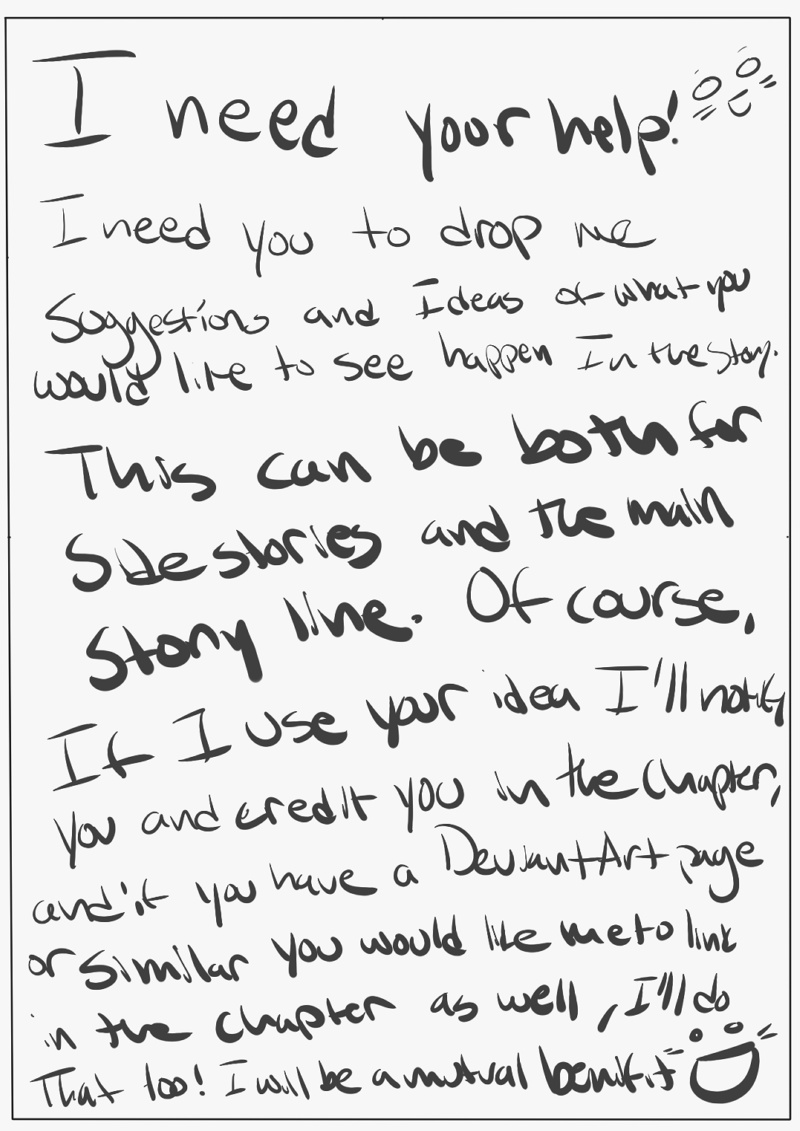 I need your help!
I need you to drop me
Suggestions and Ideas of what you
would like to see happen In the story.
This can be both for
Side stories and the main
Story line. Of course,
If I use your idea I'll notify
you and credit you in the Chapter,
and if you have a DeviantArt page
or similar you would like me to link
in the chapter as well, I'll do
That too! I will be a mutual benifit